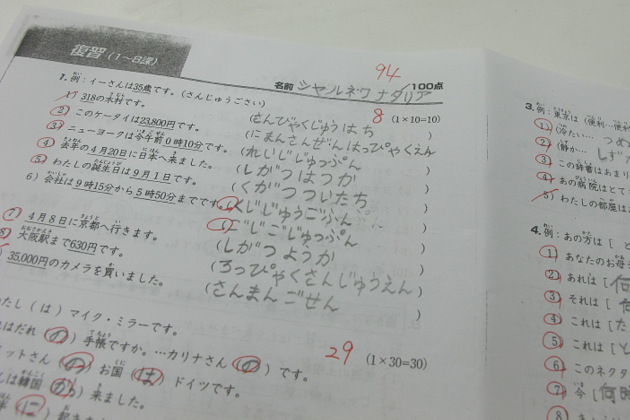 復習（1〜8課）
名前 シャルネワ ナタリア
94 /100点
1. 例：イーさんは35歳です。（さんじゅうごさい）
8 （1×10=10）
1）318の木村です。（さんびゃくじゅうはち）
2）このケータイは23,800円です。（にまんさんぜんはっぴゃくえん）
3）ニューヨークは今午前0時10分です。（れいじじゅっぷん）
4）去年の4月20日に日本へ来ました。（しがつはつか）
5）わたしの誕生日は9月1日です。（くがつついたち）
6）会社は9時15分から5時50分までです。（くじじゅうごふん
ごじごじゅっぷん）
7）4月8日に京都へ行きます。（しがつようか）
8）大阪駅まで630円です。（ろっぴゃくさんじゅうえん）
）35,000円のカメラを買いました。（さんまんごせん）
29 （1×30=30）
たし（は）マイク・ミラーです。
はだれ（の）手帳ですか。…カリナさん（の）です。
ットさん（の）お国（は）ドイツです。
しは韓国（から）来ました。
（に）
3. 例：東京は（便利…便利
1）（冷た…
2）（静か…
3）この辞書はあまり
4）あの病院はとて
5）わたしの部屋は
4. 例：あの方は［
1）あなたのお母
2）あれは［何
3）それは［何
4）これは［た
5）これは［と
6）このネクタ
7）今［何時
8